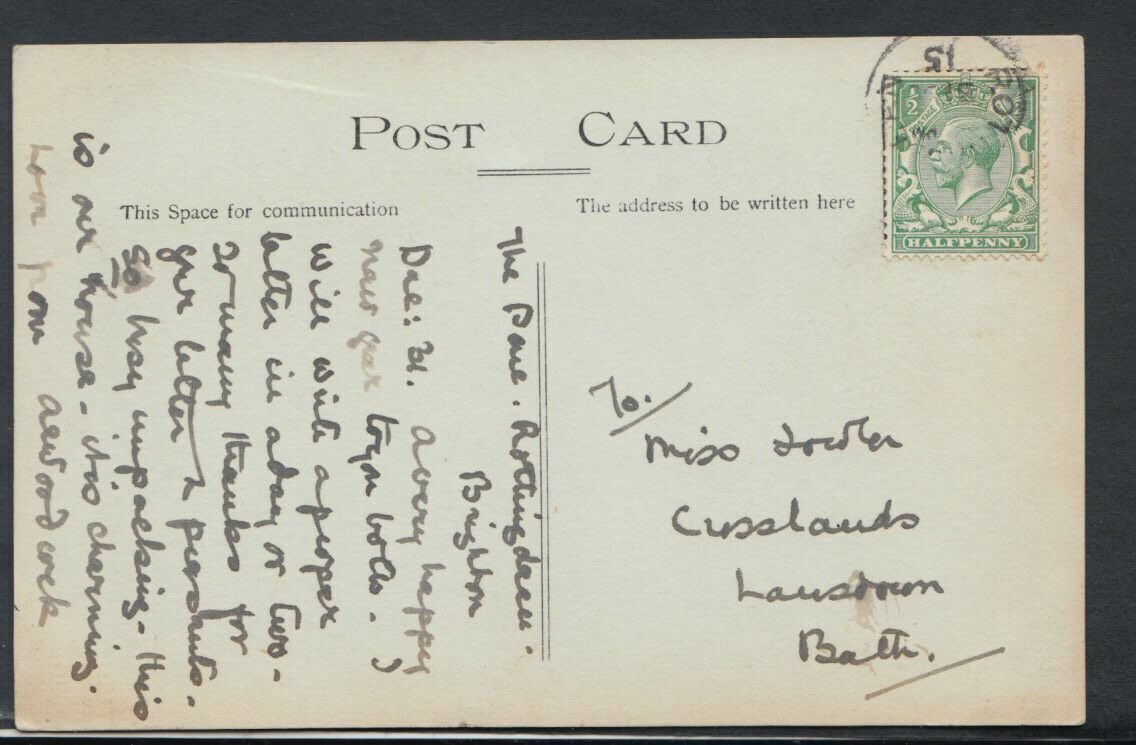 POST CARD
This Space for communication
The address to be written here
HALFPENNY
½
15
The Dene. Rottingdean.
Brighton
Dec: 31. A very happy
new year to you both.
I will write a proper
letter in a day or two -
So many thanks for
yr letter & presents.
So busy unpacking - this
is our house - it is charming.
Love from
To./
Miss Fowler
Crosslands
Lansdown
Bath.